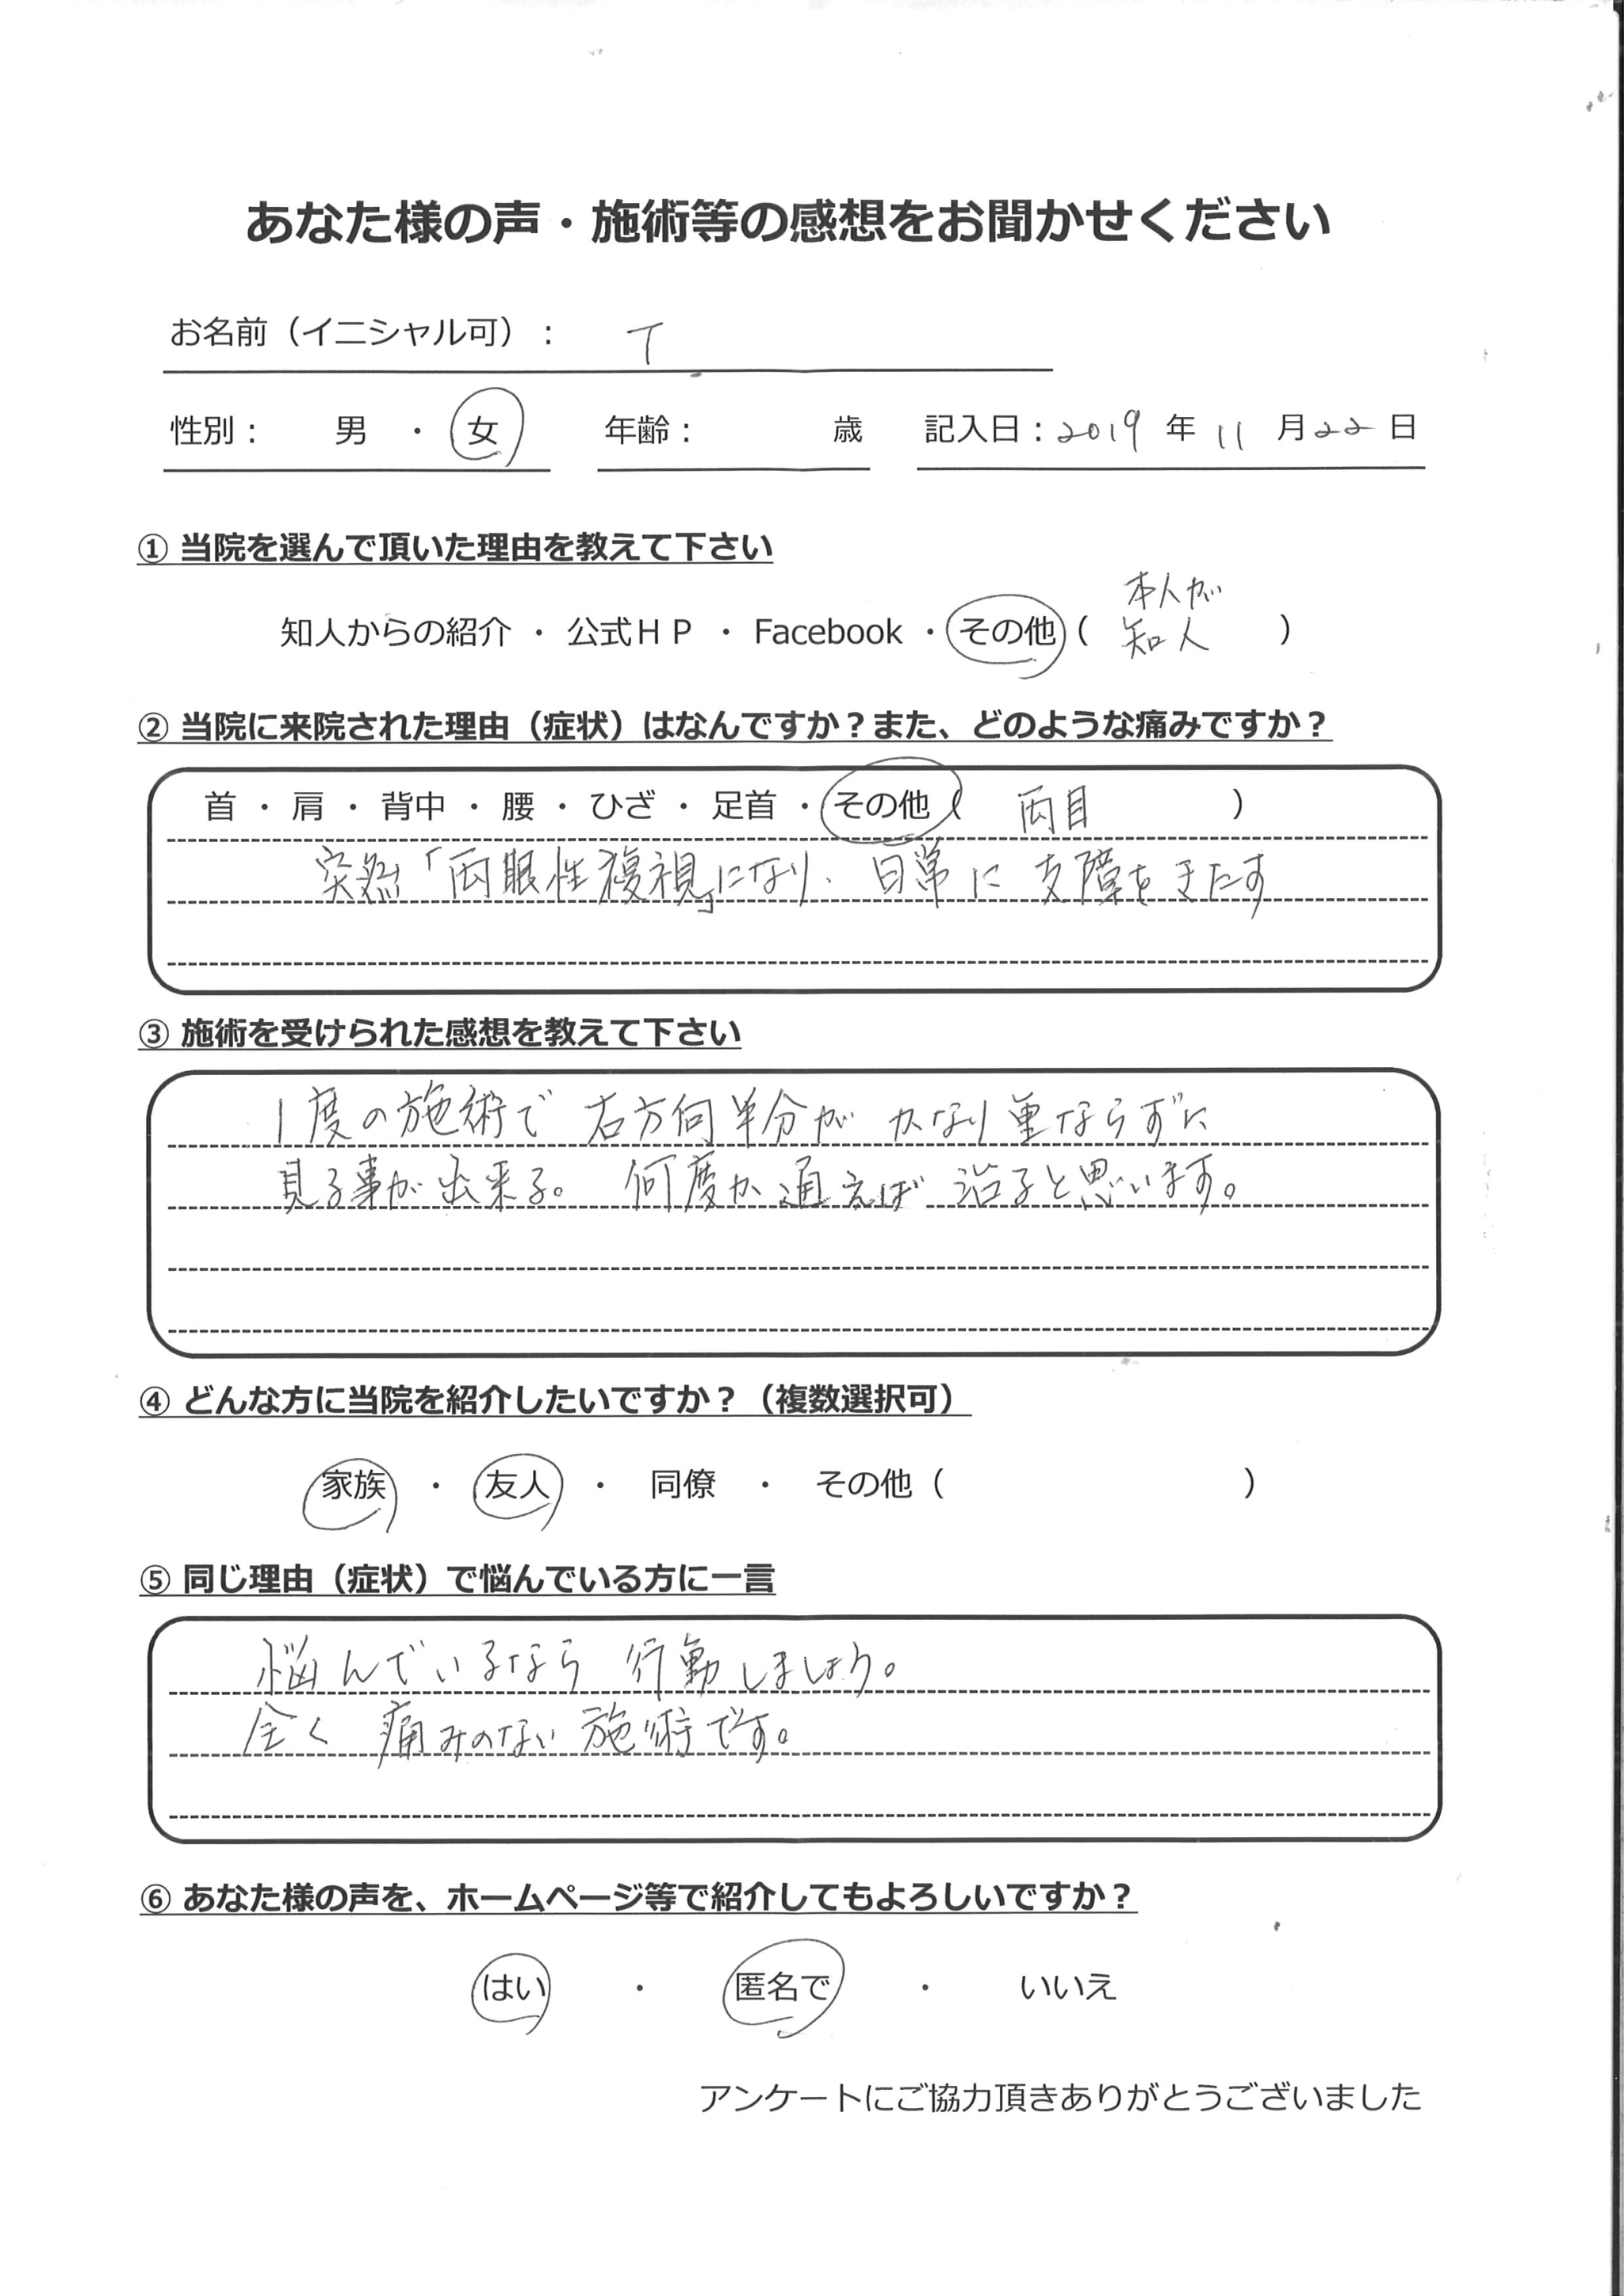 あなた様の声・施術等の感想をお聞かせください
お名前（イニシャル可）： T
性別： 男 ・ 女 年齢： 歳 記入日：2019 年 11 月 22 日
① 当院を選んで頂いた理由を教えて下さい
知人からの紹介 ・ 公式ＨＰ ・ Facebook ・ その他（ 本人が
知人 ）
② 当院に来院された理由（症状）はなんですか？また、どのような痛みですか？
首 ・ 肩 ・ 背中 ・ 腰 ・ ひざ ・ 足首 ・ その他（ 両目 ）
突然「両眼性複視」になり、日常に支障をきたす
③ 施術を受けられた感想を教えて下さい
1度の施術で 右方向半分が かなり重ならずに
見る事が出来る。 何度か通えば 治ると思います。
④ どんな方に当院を紹介したいですか？（複数選択可）
家族 ・ 友人 ・ 同僚 ・ その他（ ）
⑤ 同じ理由（症状）で悩んでいる方に一言
悩んでいるなら 行動しましょう。
全く 痛みのない 施術です。
⑥ あなた様の声を、ホームページ等で紹介してもよろしいですか？
はい ・ 匿名で ・ いいえ
アンケートにご協力頂きありがとうございました